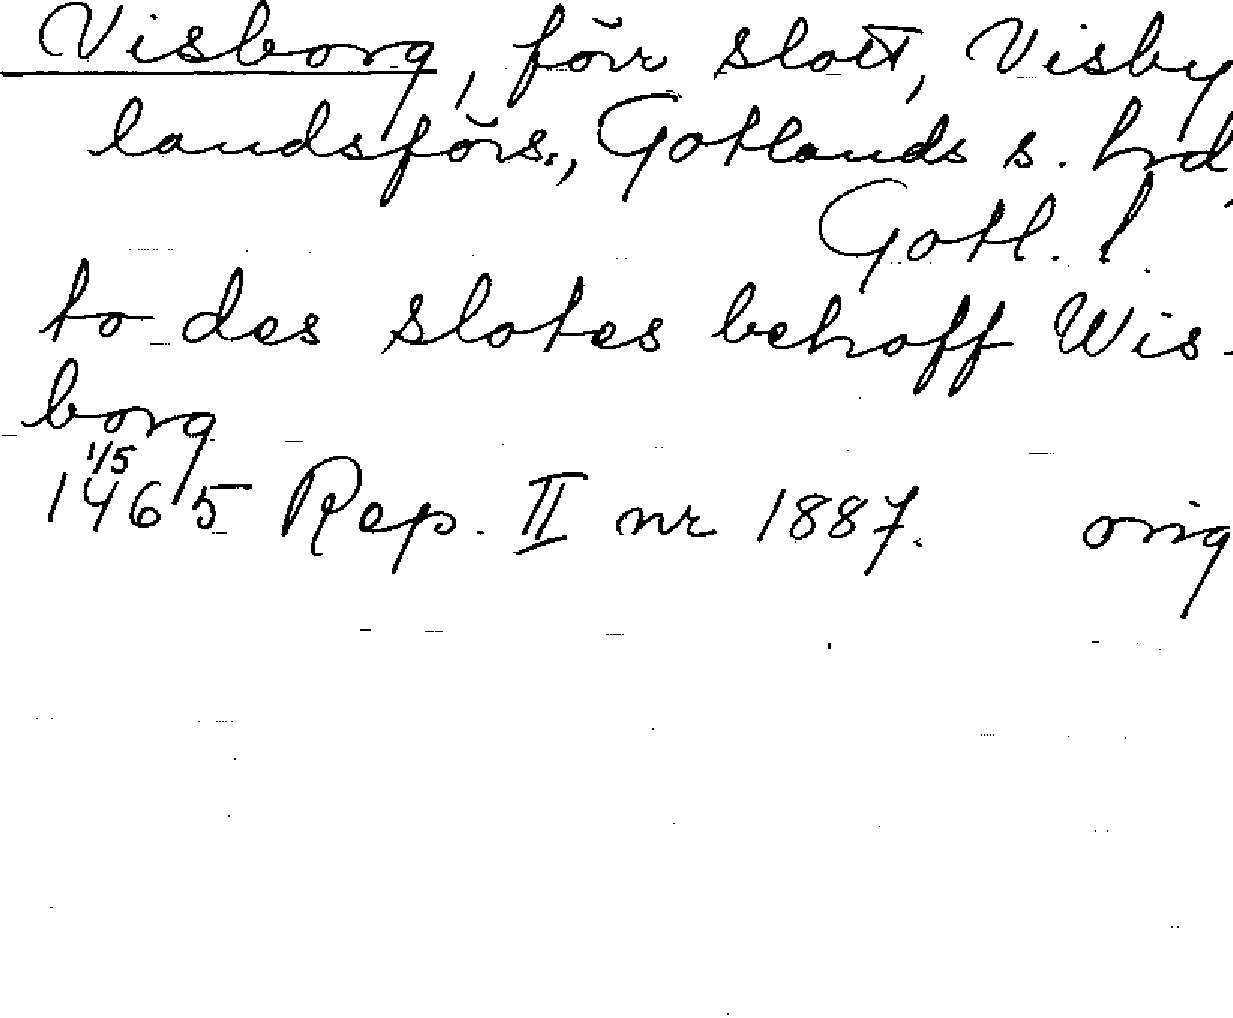 Visborg, förr slott, Visby
landsförs., Gotlands s. hrd
Gotl. l.
to des slotes behoff Wis-
borg
1/5
1465 Rep. II nr 1887. orig